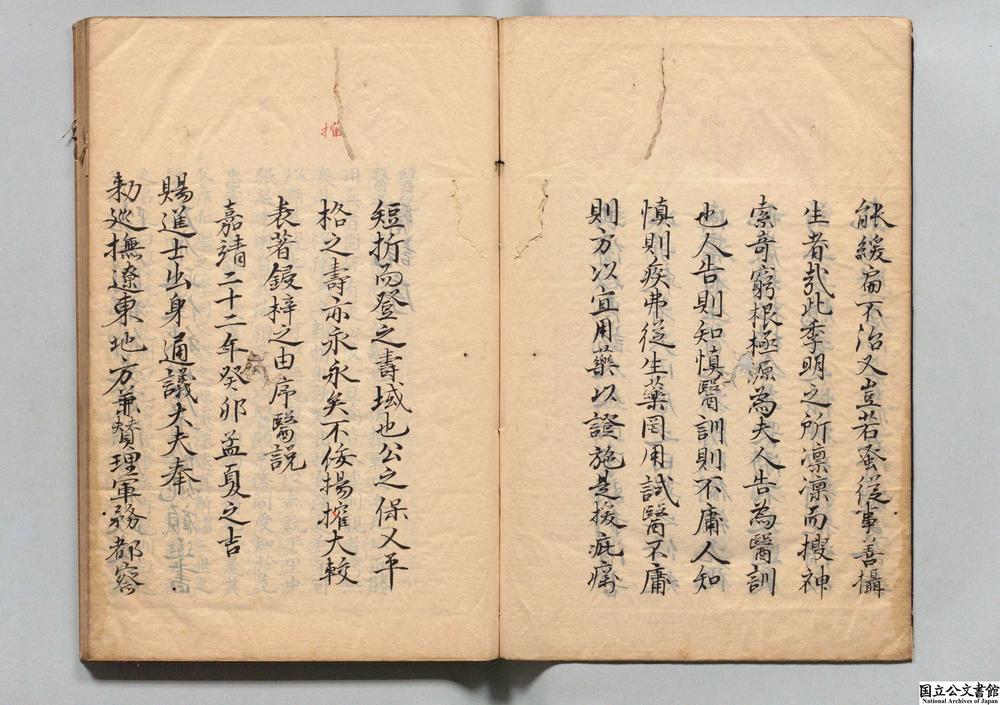 能緩扁不治又豈若蚤従事善攝
生者哉此李明之所凛凛而搜神
索竒窮根極源為夫人告為醫訓
也人告則知慎醫訓則不庸人知
慎則疾弗従生藥罔用試醫不庸
則方以宜用藥以證施是援疵癘
短折而登之壽域也公之保乂平
格之壽亦永永矣不佞揚搉大較
表著鋟梓之由序醫説
嘉靖二十二年癸卯孟夏之吉
賜進士出身通議大夫奉
勅巡撫遼東地方兼賛理軍務都察
搉
国立公文書館
National Archives of Japan